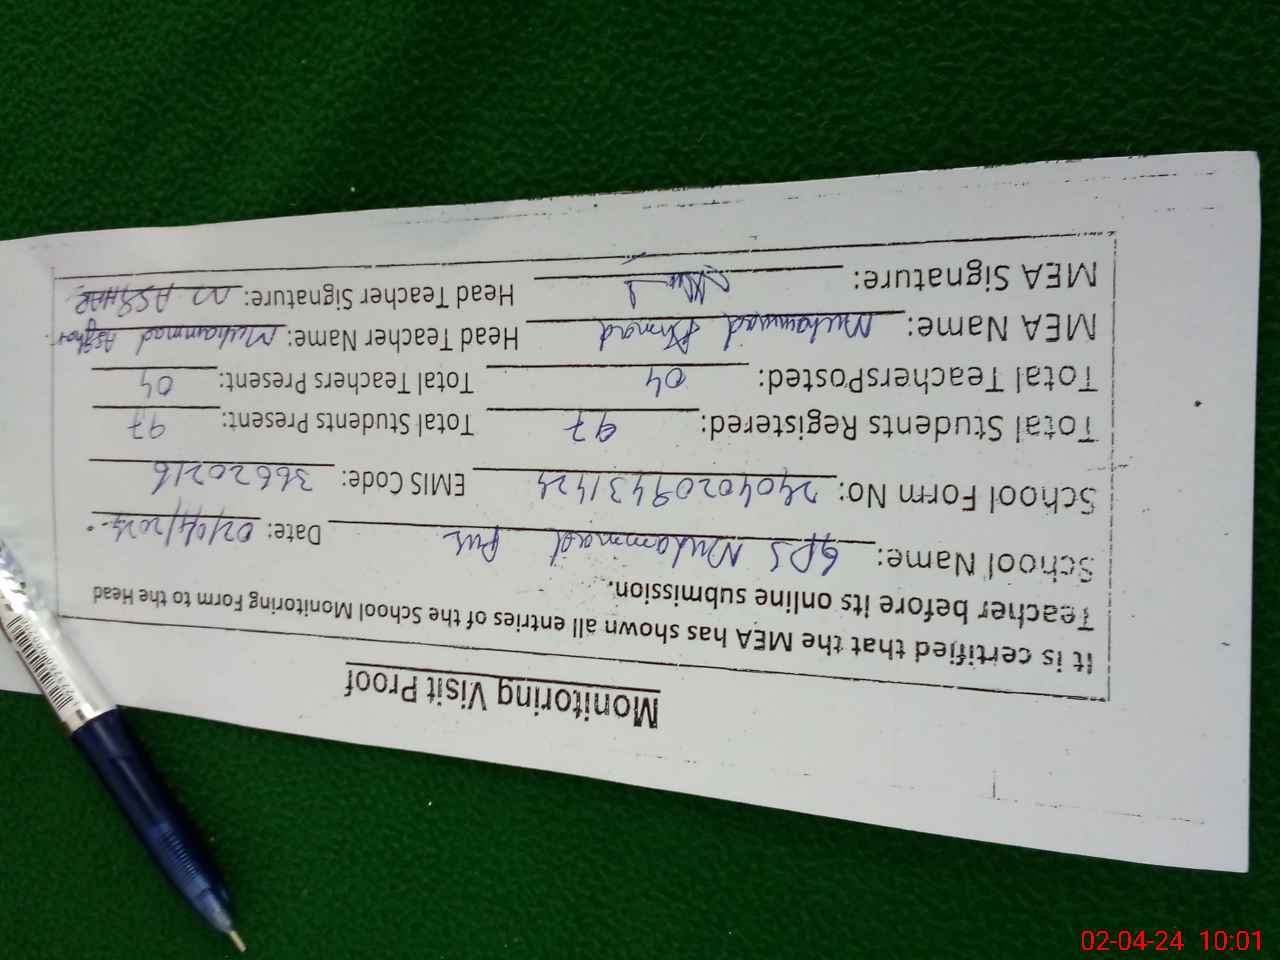 Monitoring Visit Proof
It is certified that the MEA has shown all entries of the School Monitoring Form to the Head
Teacher before its online submission.
School Name: GPS Muhammad Pur Date: 02/04/2024
School Form No: EMIS Code: 36620216
Total Students Registered: 97 Total Students Present: 97
Total TeachersPosted: 04 Total Teachers Present: 04
MEA Name: Muhammad Ahmad Head Teacher Name: Muhammad Asghar
MEA Signature: Head Teacher Signature: M ASGHAR
02-04-24 10:01